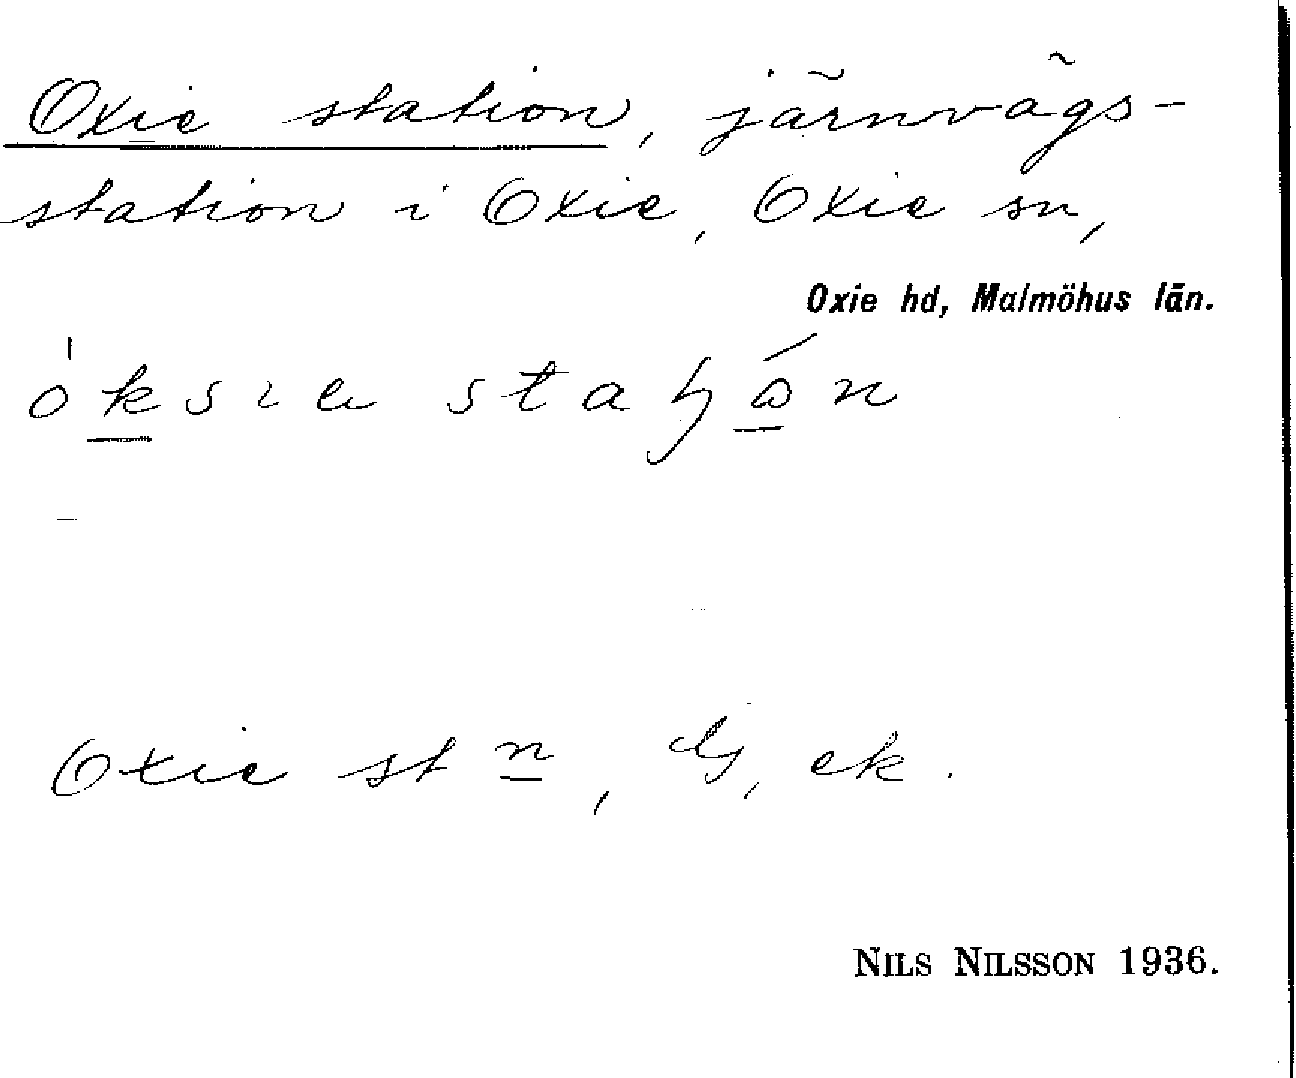 Oxie station, järnvägs-
station i Oxie, Oxie sn,
Oxie hd, Malmöhus län.
Oxie stn, G, ek.
NILS NILSSON 1936.